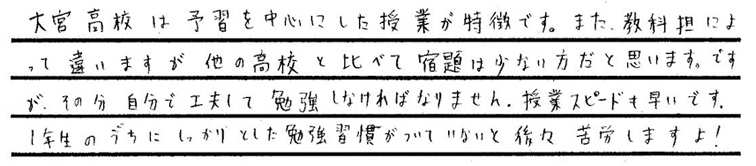 大宮高校は予習を中心にした授業が特徴です。また、教科担によ
って違いますが他の高校と比べて宿題は少ない方だと思います。です
が、その分自分で工夫して勉強しなければなりません。授業スピードも早いです。
1年生のうちにしっかりとした勉強習慣がついていないと後々苦労しますよ!